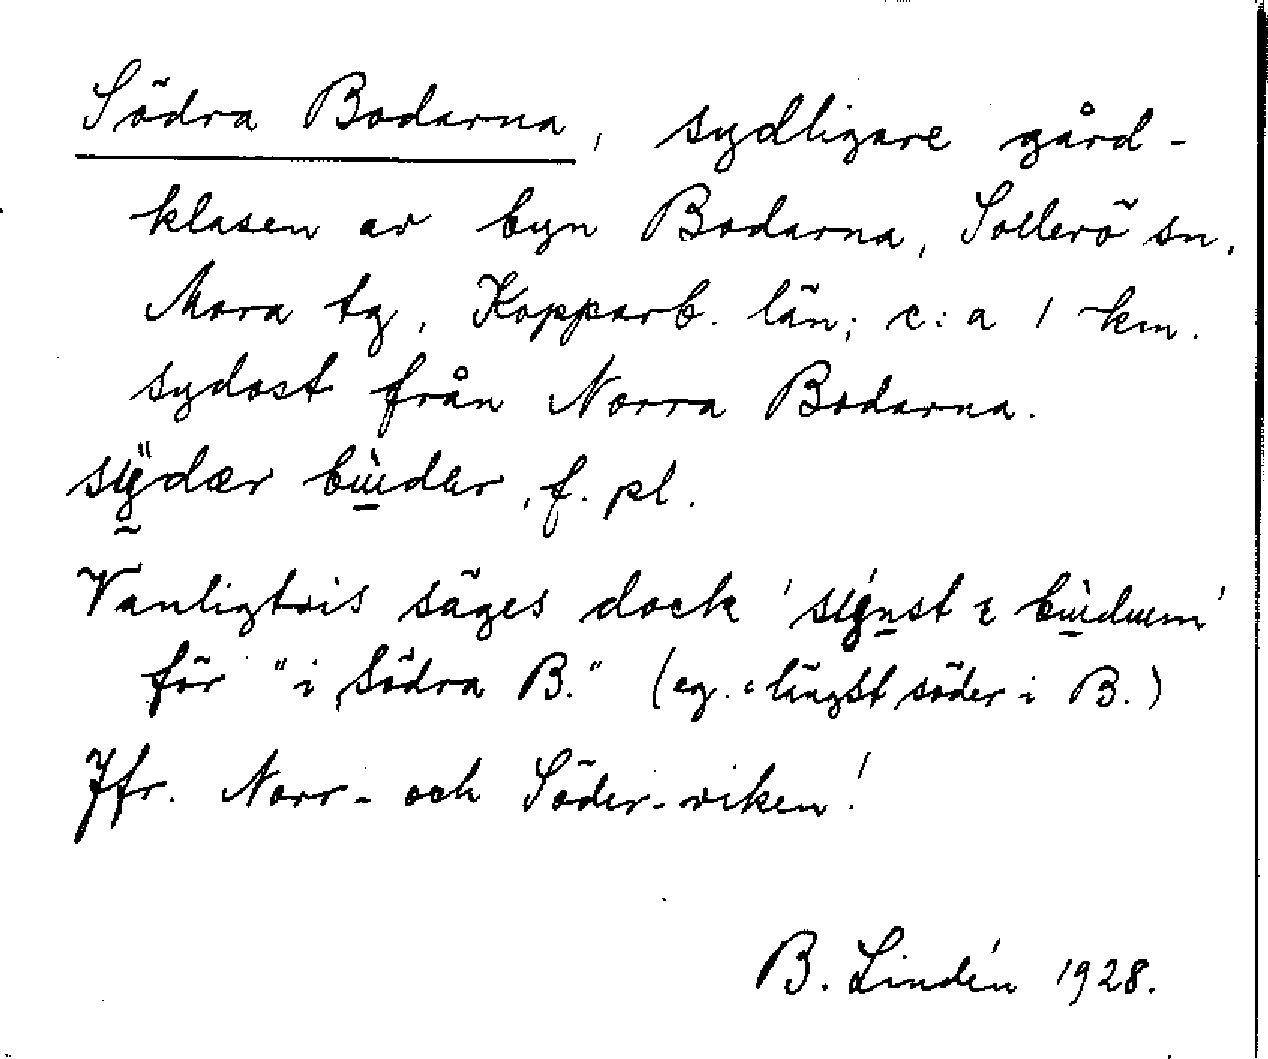 Södra Bodarna, sydligare gård-
klasen av byn Bodarna, Sollerö sn,
Mora tg, Kopparb. län; c:a 1 km.
sydost från Norra Bodarna.
f. pl.
Vanligtvis säges dock
för "i Södra B." (eg. = längst söder i B.)
Jfr. Norr- och Söder-viken!
B. Lindén 1928.